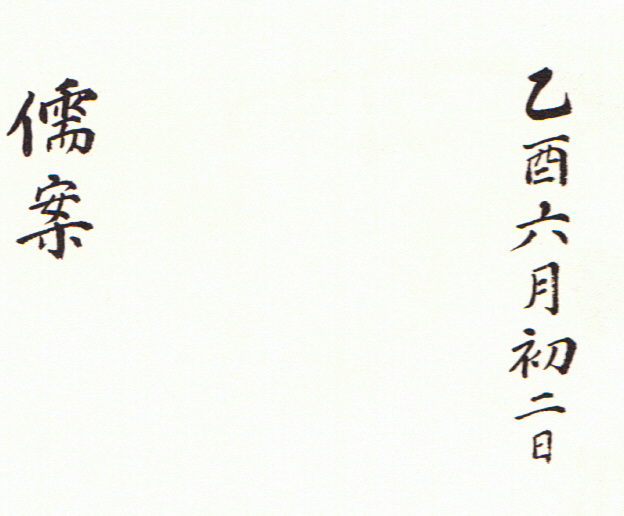 乙酉六月初二日
儒案